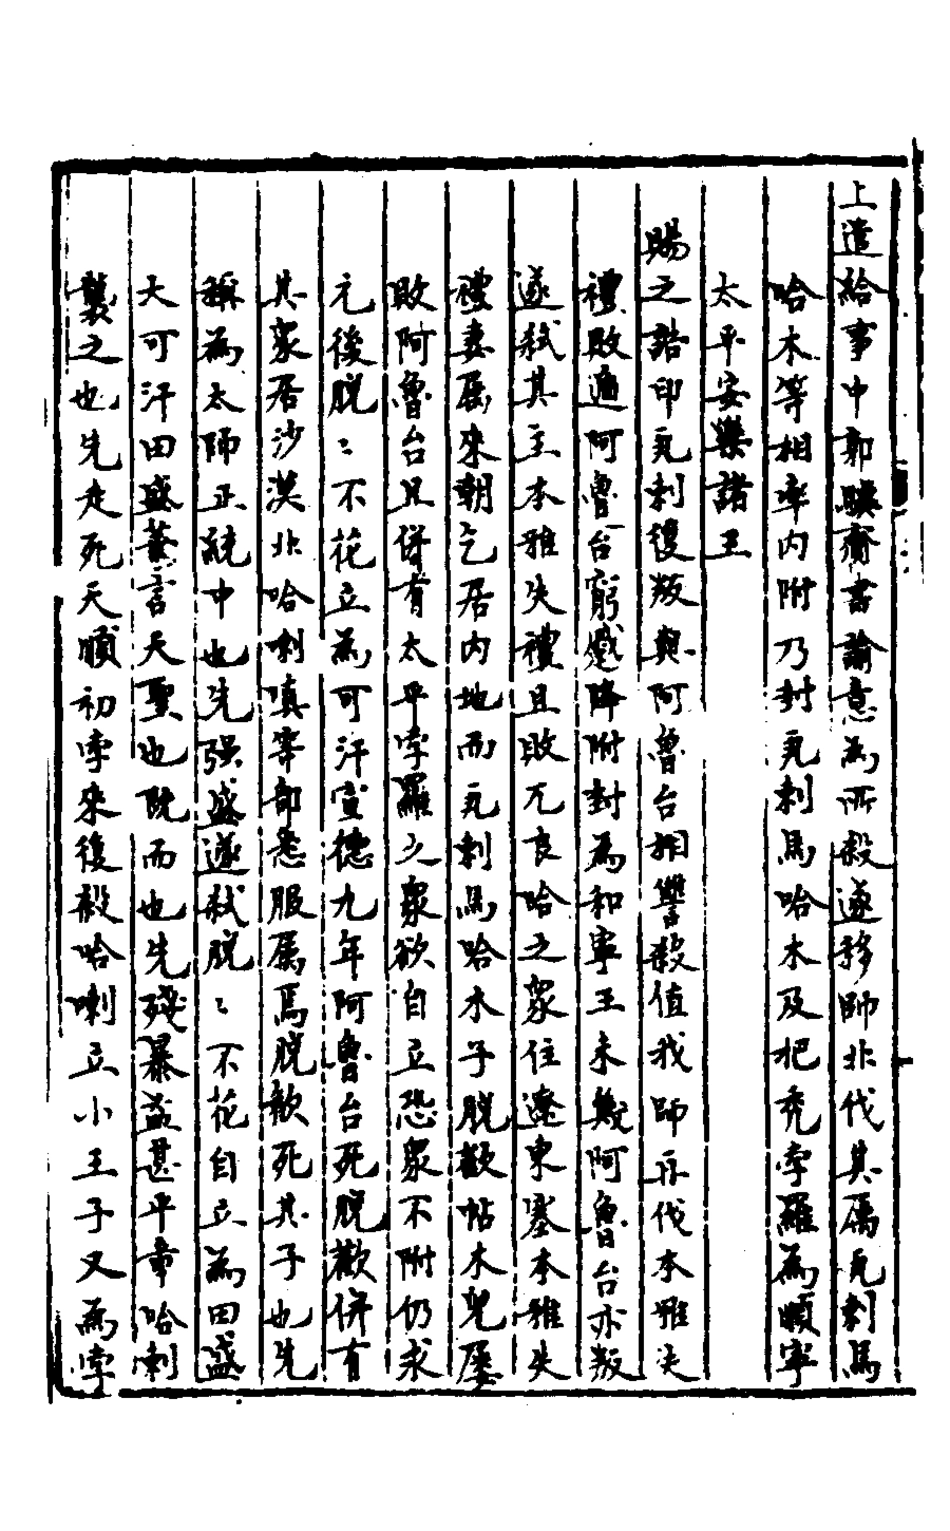 上遣給事中郭驥齎書諭意為所殺遂移師北伐其属瓦剌馬
哈木等相率内附乃封瓦剌馬哈木及把禿孛羅為順寧
太平安樂諸王
賜之誥印瓦剌復叛與阿魯台相讐殺值我師再伐本雅失
禮敗遁阿魯台窮蹙降附封為和寧王未幾阿魯台亦叛
遂弑其主本雅失禮且敗兀良哈之衆住遼東塞本雅失
禮妻属來朝乞居内地而瓦剌馬哈木子脱歡帖木兒屢
敗阿魯台且併有太平孛羅之衆欲自立恐衆不附仍求
元後脱〻不花立為可汗宣德九年阿魯台死脱歡併有
其衆居沙漠北哈喇嗔等部悉服属焉脱歡死其子也先
稱為太師正統中也先强盛遂弑脱〻不花自立為田盛
大可汗田盛華言天聖也既而也先殘暴益甚平章哈剌
襲之也先走死天順初孛來復殺哈喇立小王子又為孛